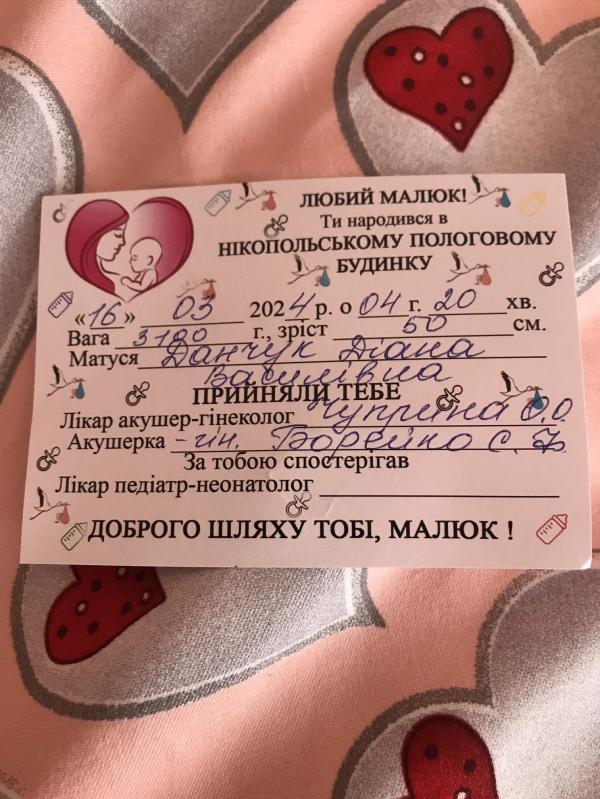 ЛЮБИЙ МАЛЮК!
Ти народився в
НІКОПОЛЬСЬКОМУ ПОЛОГОВОМУ
БУДИНКУ
«16» 03 2024 р. о 04 г. 20 хв.
Вага 3180 г., зріст 50 см.
Матуся Данчук Діана
Василівна
ПРИЙНЯЛИ ТЕБЕ
Лікар акушер-гінеколог Чуприна О.О
Акушерка -гін. Борейко С.
За тобою спостерігав
Лікар педіатр-неонатолог
ДОБРОГО ШЛЯХУ ТОБІ, МАЛЮК !